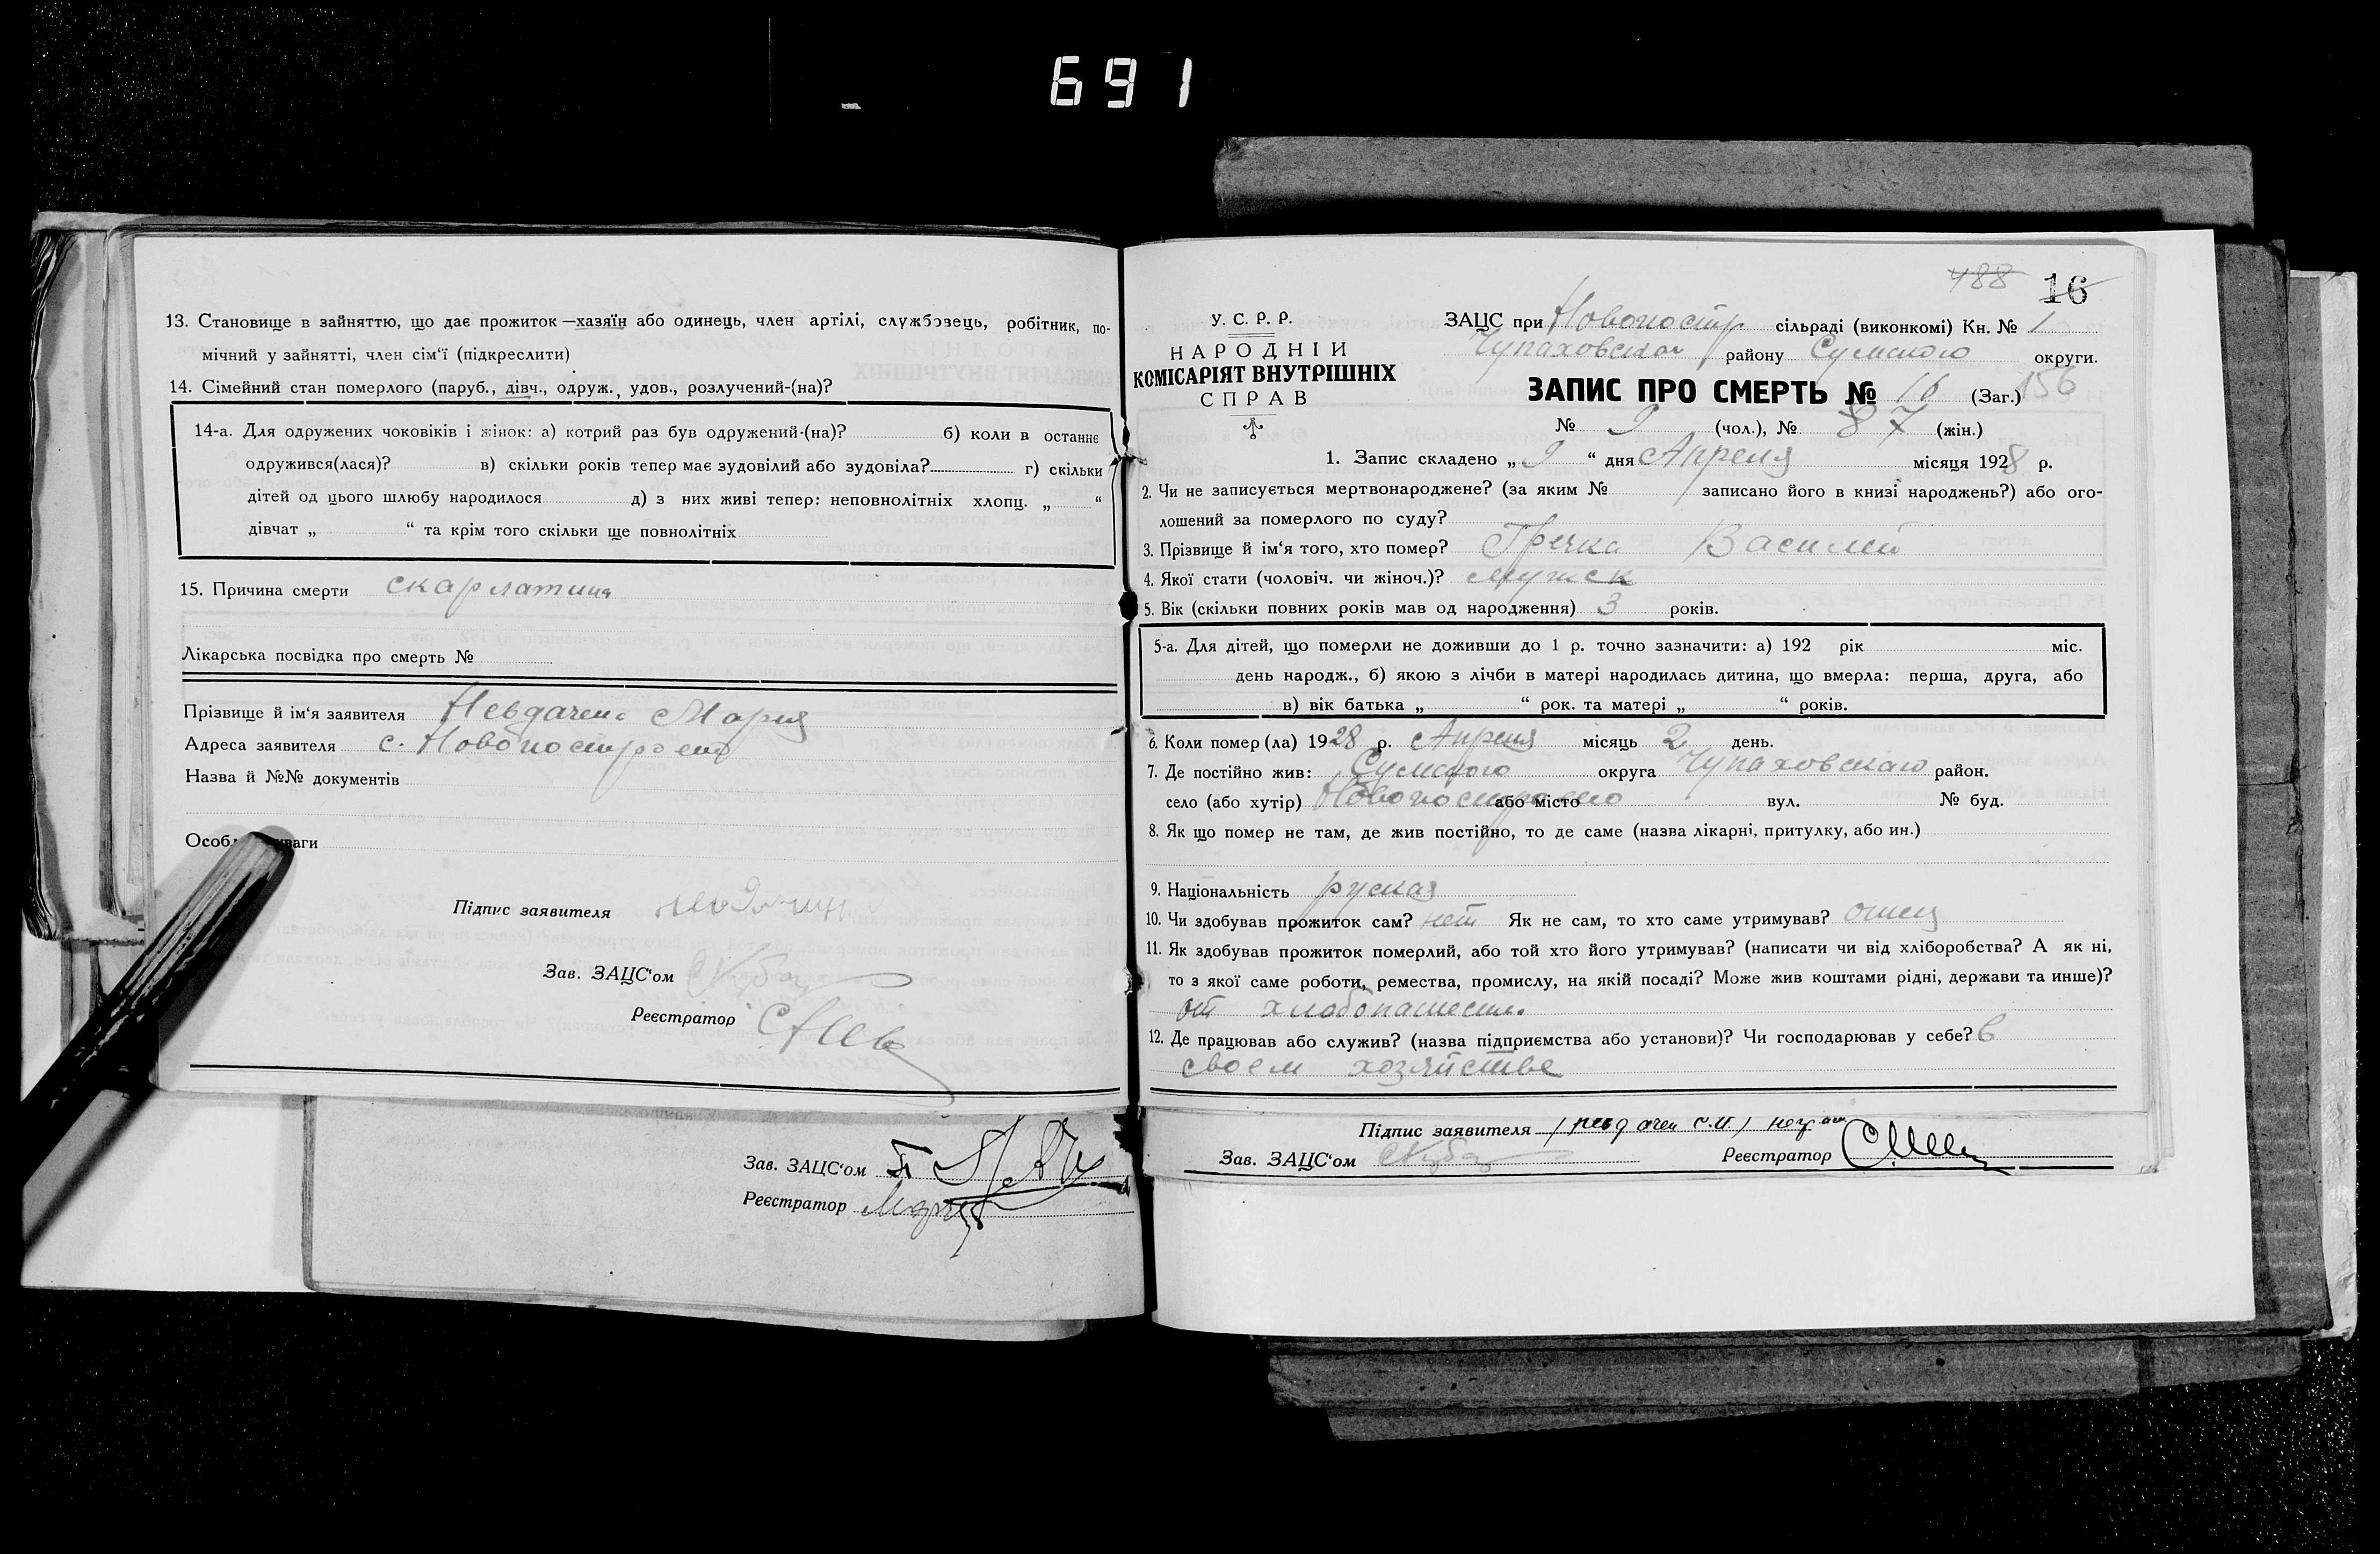 691
13. Становище в зайняттю, що дає прожиток—хазяїн або одинець, член артілі, службовець, робітник, по-
мічний у зайнятті, член сім'ї (підкреслити)
14. Сімейний стан померлого (паруб., дівч., одруж., удов., розлучений-(на)?
14-а. Для одружених чоковіків і жінок: а) котрий раз був одружений-(на)? б) коли в останнє
одружився(лася)? в) скільки років тепер має зудовілий або зудовіла? г) скільки
дітей од цього шлюбу народилося д) з них живі тепер: неповнолітніх хлопц. „ “
дівчат „ “ та крім того скільки ще повнолітніх
15. Причина смерти скарлатина
Лікарська посвідка про смерть №
Прізвище й ім'я заявителя Мария
Адреса заявителя с. Новопостроено
Назва й №№ документів
Особл уваги
Підпис заявителя
Зав. ЗАЦС'ом
Реєстратор
Зав. ЗАЦС'ом
Реєстратор
488 16
У. С. Р. Р.
НАРОДНІЙ
КОМІСАРІЯТ ВНУТРІШНІХ
СПРАВ
ЗАЦС при Новопостр сільраді (виконкомі) Кн. № 1
Чупаховской району Сумского округи.
ЗАПИС ПРО СМЕРТЬ № 16 (Заг.) 156
№ 9 (чол.), № 87 (жін.)
1. Запис складено „ 9 “ дня Апреля місяця 1928 р.
2. Чи не записується мертвонароджене? (за яким № записано його в книзі народжень?) або ого-
лошений за померлого по суду?
3. Прізвище й ім'я того, хто помер? Гречка Василий
4. Якої стати (чоловіч. чи жіноч.)? мужск
5. Вік (скільки повних років мав од народження) 3 років.
5-а. Для дітей, що померли не доживши до 1 р. точно зазначити: а) 192 рік міс.
день народж., б) якою з лічби в матері народилась дитина, що вмерла: перша, друга, або
в) вік батька „ “ рок. та матері „ “ років.
6. Коли помер(ла) 1928 р. Апреля місяць 2 день.
7. Де постійно жив: Сумского округа Чупаховскаго район.
село (або хутір) Новопостроено або місто вул. № буд.
8. Як що помер не там, де жив постійно, то де саме (назва лікарні, притулку, або ин.)
9. Національність руская
10. Чи здобував прожиток сам? нет Як не сам, то хто саме утримував? отец
11. Як здобував прожиток померлий, або той хто його утримував? (написати чи від хліборобства? А як ні,
то з якої саме роботи, ремества, промислу, на якій посаді? Може жив коштами рідні, держави та инше)?
от хлебопашест.
12. Де працював або служив? (назва підприємства або установи)? Чи господарював у себе? в
своем хозяйстве
Підпис заявителя
Зав. ЗАЦС'ом Реєстратор